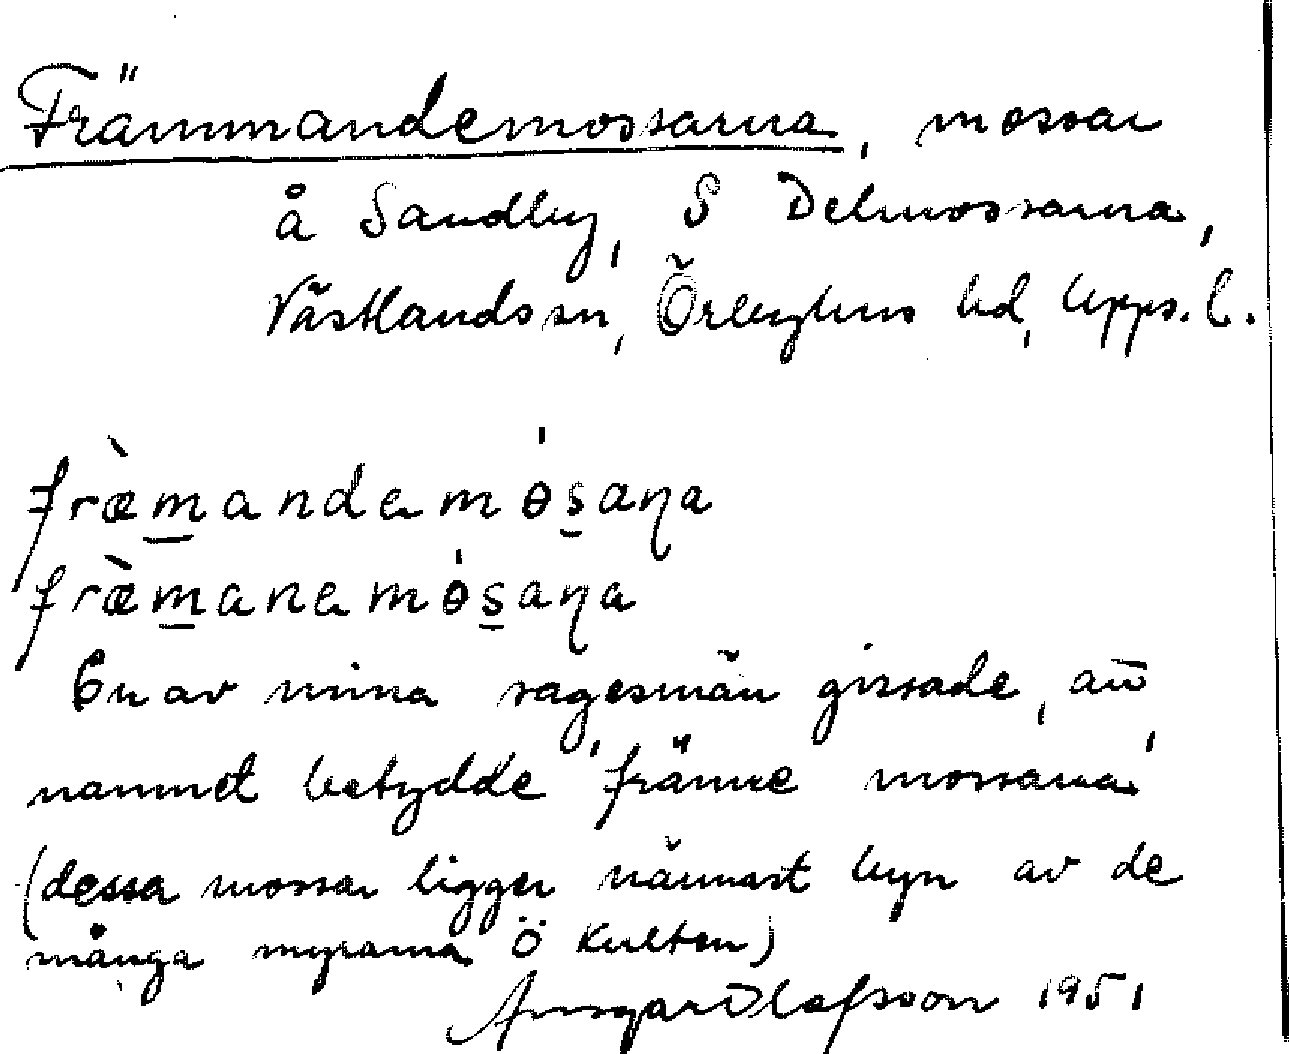 Främmandemossarna, mossar
å Sandby, S Delmossarna,
Västlands sn, Örbyhus hd, Upps. l.
fræ̀mandəmósaɳa
fræ̀manəmósaɳa
En av mina sagesmän gissade, att
namnet betydde 'främre mossarna'
(dessa mossar ligger närmast byn av de
många myrarna Ö Kulten)
Ansgar Olafsson 1951